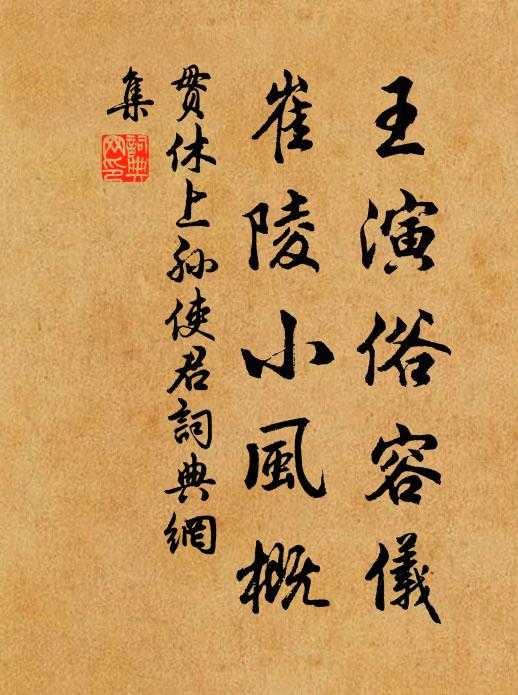 王演俗容儀
崔陵小風概
貫休上孫使君詞典網
集
詞典
网印